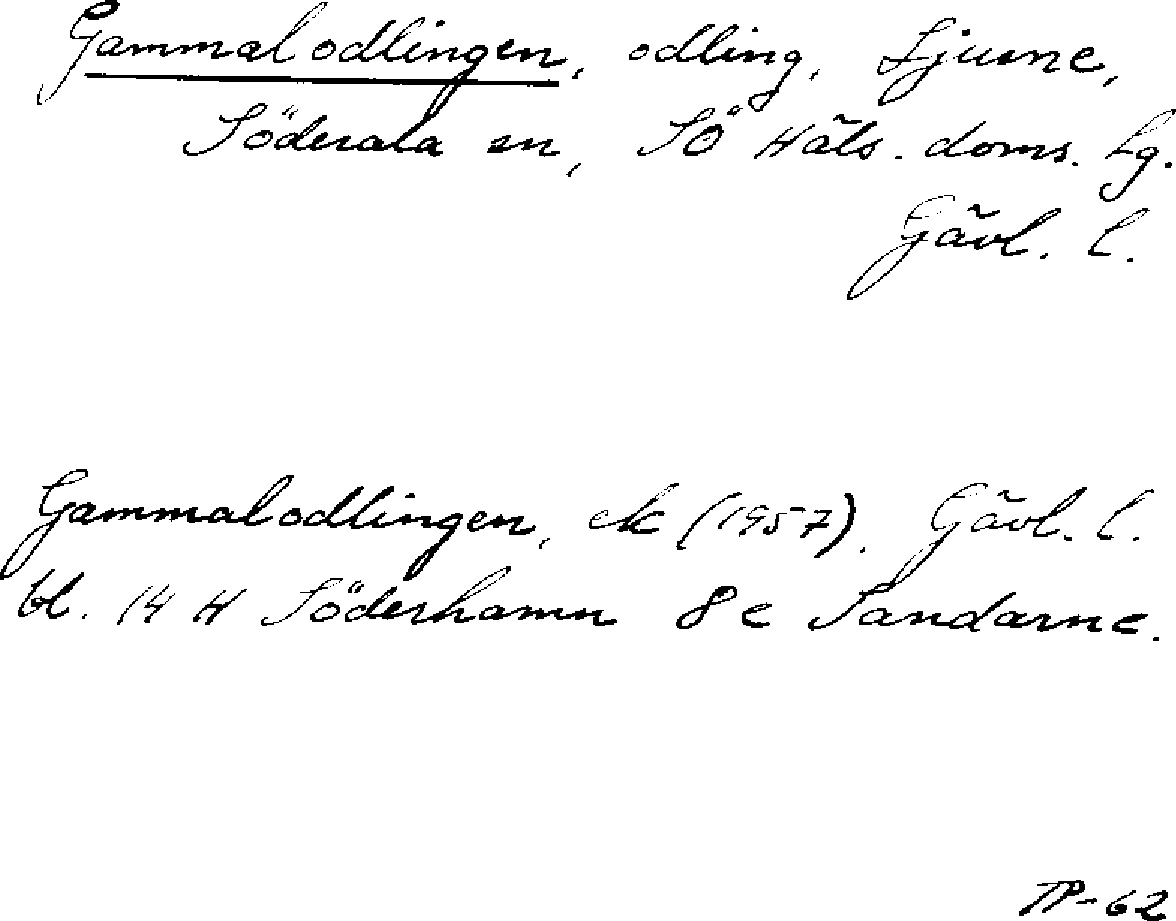 Gammalodlingen, odling, Ljusne,
Söderala sn, SÖ Häls. doms. Lg.
Gävl. l.
Gammalodlingen, ek (1957). Gävl. l.
bl. 14 H Söderhamn 8 c Sandarne.
TP-62